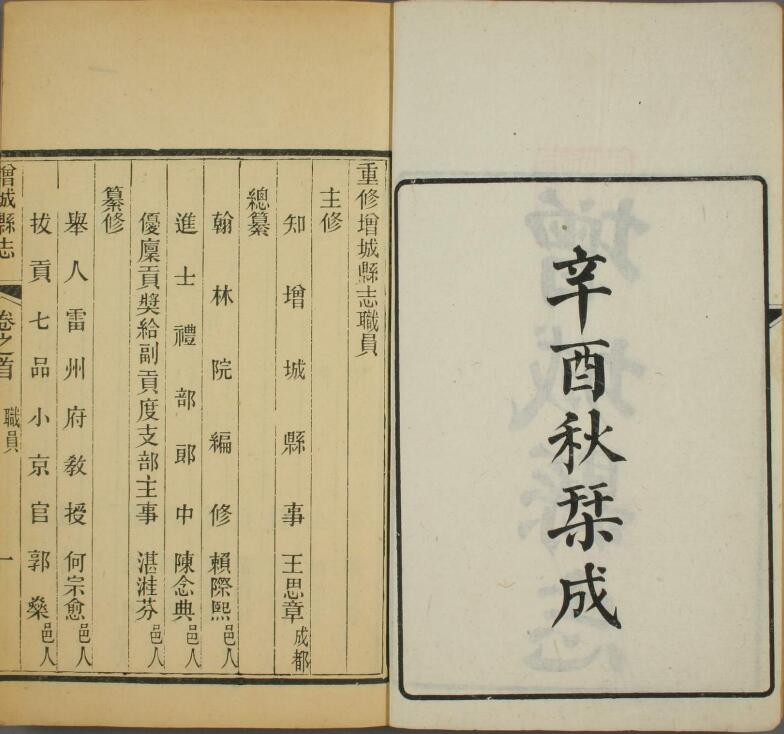 辛酉秋栞成
重修增城縣志職員
主修
知增城縣事王思章成都
總纂
翰林院編修賴際熙邑人
進士禮部郎中陳念典邑人
優廩貢獎給副貢度支部主事湛溎芬邑人
纂修
舉人雷州府教授何宗愈邑人
拔貢七品小京官郭燊邑人
增城縣志 卷之首 職員 一